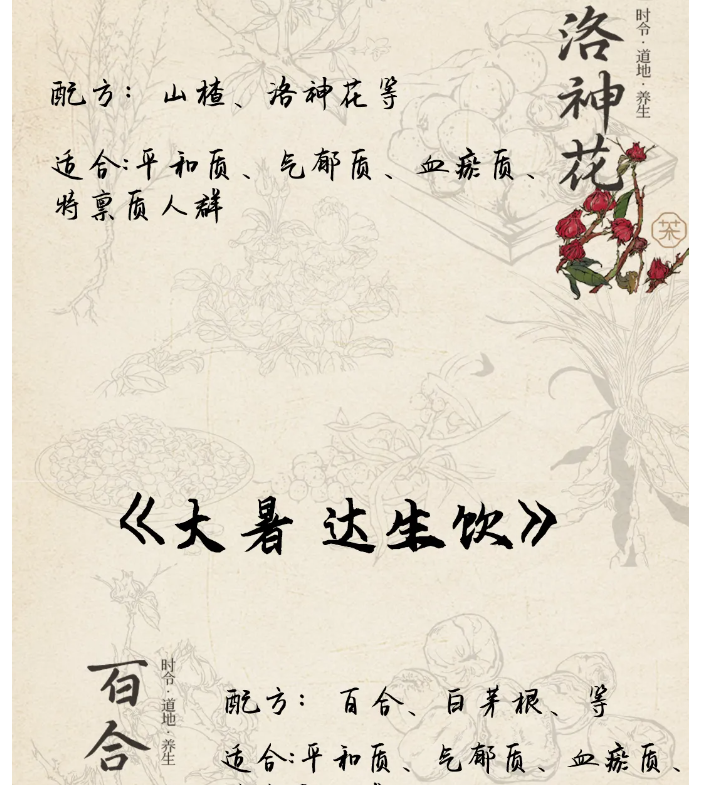 洛神花
时令·道地·养生
配方：山楂、洛神花等
适合:平和质、气郁质、血瘀质、
特禀质人群
《大暑 达生饮》
百合
时令·道地·养生
配方：百合、白茅根、等
适合:平和质、气郁质、血瘀质、